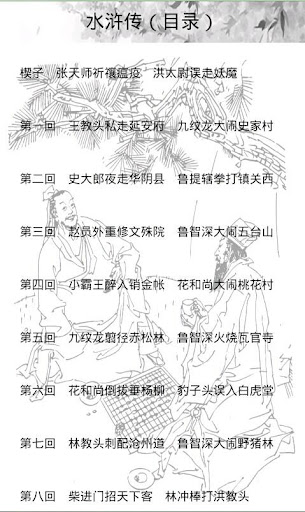 水浒传（目录）
楔子 张天师祈禳瘟疫 洪太尉误走妖魔
第一回 王教头私走延安府 九纹龙大闹史家村
第二回 史大郎夜走华阴县 鲁提辖拳打镇关西
第三回 赵员外重修文殊院 鲁智深大闹五台山
第四回 小霸王醉入销金帐 花和尚大闹桃花村
第五回 九纹龙翦径赤松林 鲁智深火烧瓦官寺
第六回 花和尚倒拔垂杨柳 豹子头误入白虎堂
第七回 林教头刺配沧州道 鲁智深大闹野猪林
第八回 柴进门招天下客 林冲棒打洪教头